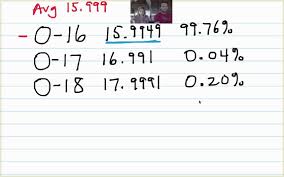 Avg 15.999
- O-16 15.9949 99.76%
O-17 16.991 0.04%
O-18 17.9991 0.20%